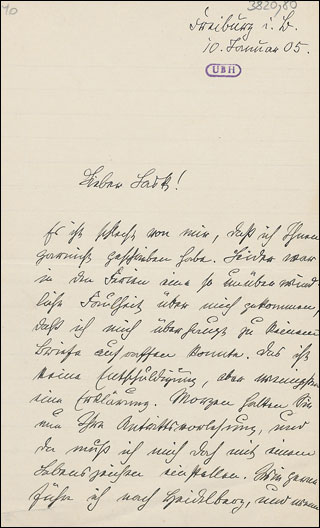 40
3820,80
Freiburg i. B.
10. Januar 05.
UBH
Lieber Lask!
Es ist schlecht von mir, daß ich Ihnen
garnicht geschrieben habe. Leider war
in den Ferien eine so unüberwind
liche Faulheit über mich gekommen,
daß ich mich überhaupt zu keinem
Briefe aufraffen konnte. Das ist
keine Entschuldigung, aber wenigstens
eine Erklärung. Morgen halten Sie
nun Ihre Antrittsvorlesung, und
da muß ich mich doch mit einem
Lebenszeichen einstellen. Wie gerne
führ ich nach Heidelberg, und wenn